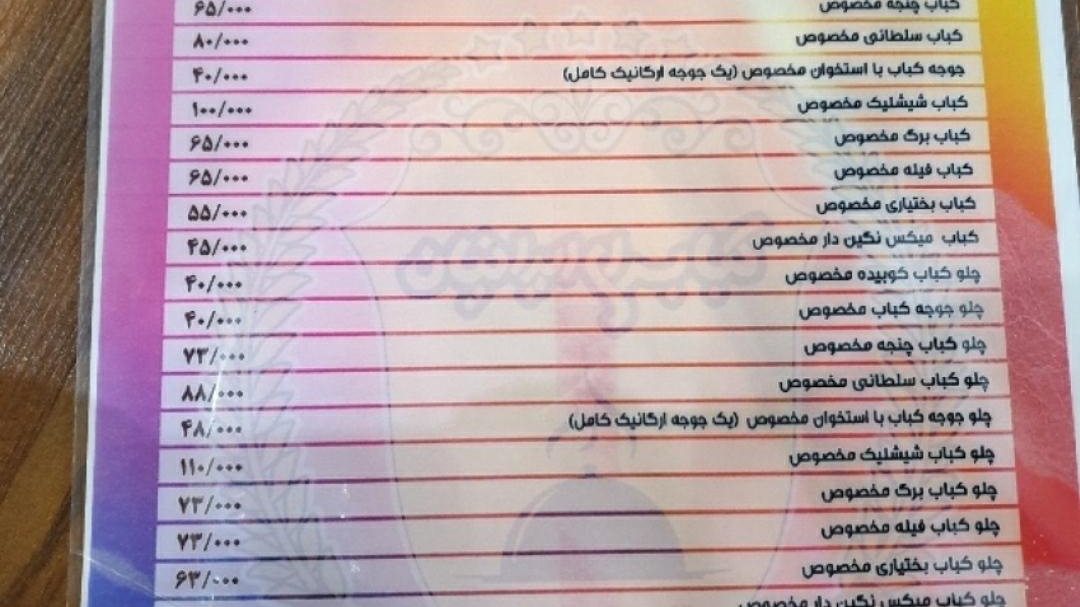 کباب چنجه مخصوص ۶۵/۰۰۰
کباب سلطانی مخصوص ۸۰/۰۰۰
جوجه کباب با استخوان مخصوص (یک جوجه ارگانیک کامل) ۴۰/۰۰۰
کباب شیشلیک مخصوص ۱۰۰/۰۰۰
کباب برگ مخصوص ۶۵/۰۰۰
کباب فیله مخصوص ۶۵/۰۰۰
کباب بختیاری مخصوص ۵۵/۰۰۰
کباب میکس نگین دار مخصوص ۴۵/۰۰۰
چلو کباب کوبیده مخصوص ۴۰/۰۰۰
چلو جوجه کباب مخصوص ۴۰/۰۰۰
چلو کباب چنجه مخصوص ۷۳/۰۰۰
چلو کباب سلطانی مخصوص ۸۸/۰۰۰
چلو جوجه کباب با استخوان مخصوص (یک جوجه ارگانیک کامل) ۴۸/۰۰۰
چلو کباب شیشلیک مخصوص ۱۱۰/۰۰۰
چلو کباب برگ مخصوص ۷۳/۰۰۰
چلو کباب فیله مخصوص ۷۳/۰۰۰
چلو کباب بختیاری مخصوص ۶۳/۰۰۰
چلو کباب میکس نگین دار مخصوص